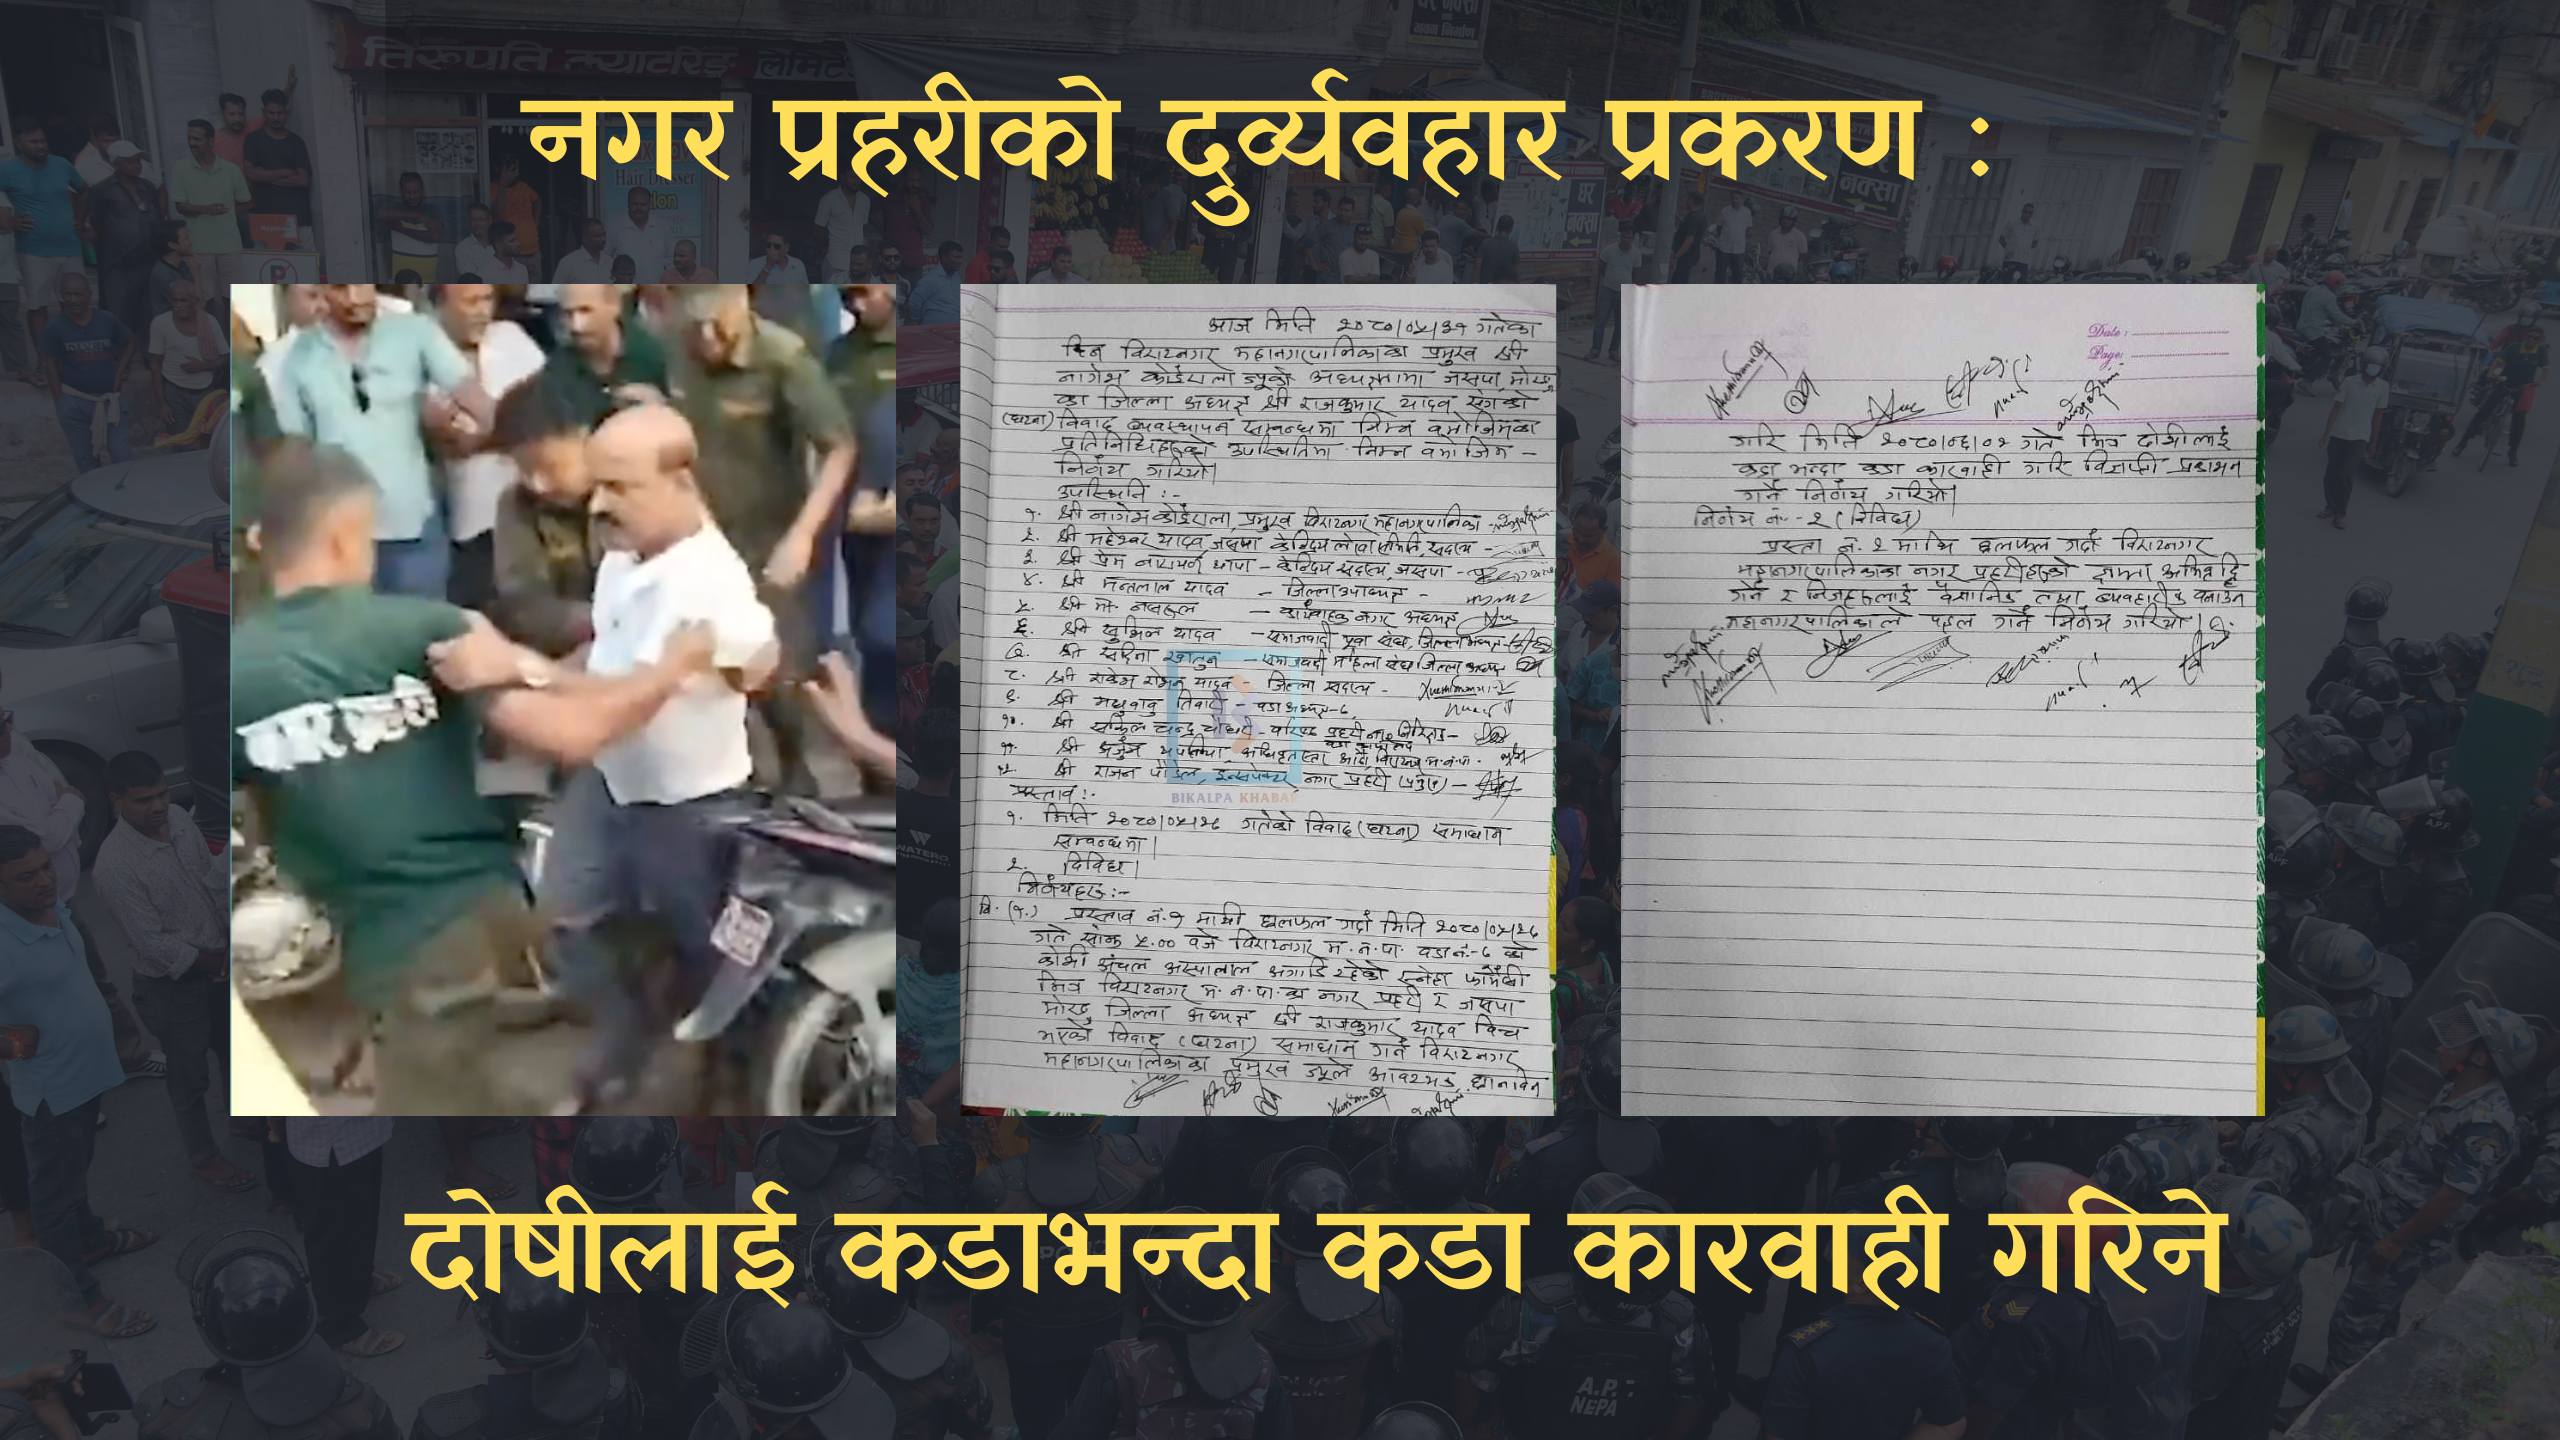 नगर प्रहरीको दुर्व्यवहार प्रकरण :
तिरुपति क्याटरिङ
Hair Dresser
घर
नक्सा
नक्सा
आज मिति २०८०।०५।३१ गतेका
दिन विराटनगर महानगरपालिकाका प्रमुख श्री
नागेश कोईराला ज्यूको अध्यक्षतामा जसपा मोरङ्ग
का जिल्ला अध्यक्ष श्री राजकुमार यादव सँगको
(घटना) विवाद व्यवस्थापन सम्बन्धमा निम्न बमोजिमका
प्रतिनिधिहरुको उपस्थितिमा निम्न बमोजिम -
निर्णय गरियो।
उपस्थिति :-
१. श्री नागेश कोईराला, प्रमुख विराटनगर महानगरपालिका -
२. श्री महेश्वर यादव जसपा केन्द्रिय सदस्य -
३. श्री प्रेम नारायण थापा - केन्द्रिय सदस्य, जसपा -
४. श्री मन्तलाल यादव - जिल्ला उपाध्यक्ष -
५. श्री मो. - कार्यवाहक नगर अध्यक्ष
६. श्री यादव - समाजवादी युवा संघ, जिल्ला अध्यक्ष
७. श्री खातुन - समाजवादी महिला संघ जिल्ला अध्यक्ष
८. श्री राकेश रोशन यादव - जिल्ला सदस्य -
९. श्री मधुबाबु तिवारी - वडा अध्यक्ष-६
१०. श्री चन्द्र चौधरी - वरिष्ठ प्रहरी नायव निरिक्षक -
११. श्री अर्जुन थपलिया, अधिकृतस्तर आठौं, विराटनगर म.न.पा.
१२. श्री राजन पौडेल, इन्सपेक्टर नगर प्रहरी (प्रमुख) -
BIKALPA KHABAR
प्रस्ताव :-
१. मिति २०८०।०५।२६ गतेको विवाद (घटना) समाधान
सम्बन्धमा।
२. विविध।
निर्णयहरु :-
नि. (१.) प्रस्ताव नं. १ माथी छलफल गर्दा मिति २०८०।०५।२६
गते साँझ ५.०० बजे विराटनगर म.न.पा. वडा नं.-६ को
कोशी अंचल अस्पताल अगाडि रहेको स्नेहा फार्मेसी
भित्र विराटनगर म.न.पा.का नगर प्रहरी र जसपा
मोरङ्ग जिल्ला अध्यक्ष श्री राजकुमार यादव बिच
भएको विवाद (घटना) समाधान गर्न विराटनगर
महानगरपालिकाका प्रमुख ज्यूले आवश्यक छानविन
Date :
Page:
गरि मिति २०८०।०६।०१ गते भित्र दोषीलाई
कडा भन्दा कडा कारवाही गरि विज्ञप्ती प्रकाशन
गर्ने निर्णय गरियो।
निर्णय नं.-२ (विविध)
प्रस्ताव नं. २ माथि छलफल गर्दा विराटनगर
महानगरपालिकाका नगर प्रहरीहरुको क्षमता अभिवृद्धि
गर्न र निजहरुलाई वैज्ञानिक तथा व्यवहारीक बनाउन
महानगरपालिकाले पहल गर्ने निर्णय गरियो।
APF
A.P.F
NEPA
दोषीलाई कडाभन्दा कडा कारवाही गरिने